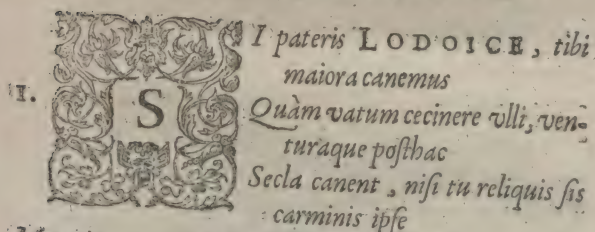 II.
SI pateris LODOICE, tibi
maiora canemus
Quàm vatum cecinere vlli, ven-
turaque posthac
Secla canent, nisi tu reliquis sis
carminis ipse